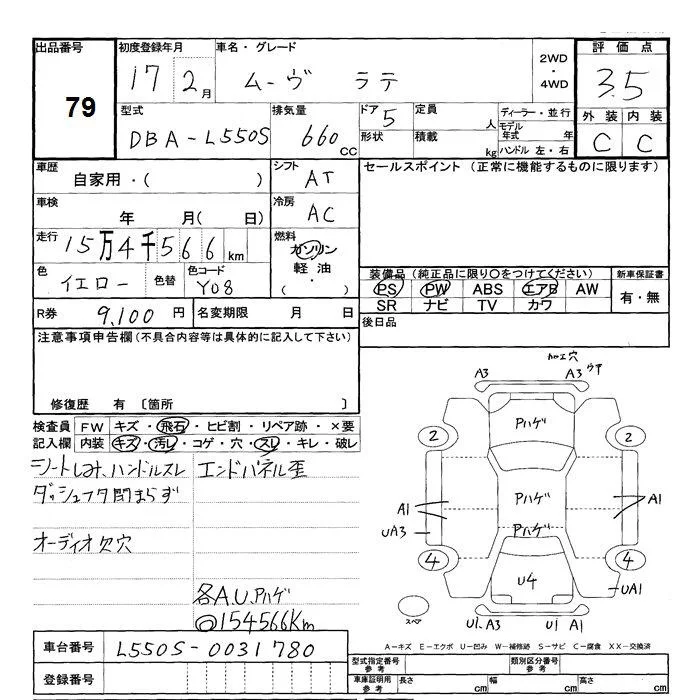 出品番号 79
初度登録年月 17 2月
車名・グレード ムーヴ ラテ
2WD・4WD
評価点 3.5
外装 内装
C C
型式 DBA-L550S
排気量 660 CC
ドア 5
形状
定員 人
積載 kg
ディーラー・並行
モデル年式 年
ハンドル 左・右
車歴 自家用・( )
シフト AT
セールスポイント (正常に機能するものに限ります)
車検 年 月( 日)
冷房 AC
走行 15万4千566km
燃料 ガソリン
軽油
( ・ )
色 イエロー
色替
色コード Y08
装備品 (純正品に限り○をつけてください)
新車保証書
PS PW ABS エアB AW
有・無
SR ナビ TV カワ
R券 9,100 円
名変期限 月 日
後日品
注意事項申告欄 (不具合内容等は具体的に記入して下さい)
修復歴 有 〔箇所 〕
検査員 FW キズ・飛石・ヒビ割・リペア跡・×要
記入欄 内装 キズ・汚レ・コゲ・穴・スレ・キレ・破レ
シートしみ、ハンドルスレ
ダッシュフタ閉まらず
オーディオ欠穴
エンドパネル歪
各A.U.Pハゲ
◎154566Km
加工穴
A3 A3 ウサ
Pハゲ
2 2
Pハゲ
A1 A1
UA3
Pハゲ
4 4
U4
UA1
スペア
U1.A3 U1 A1
車台番号 L550S-0031780
登録番号
A-キズ E-エクボ U-凹み W-補修跡 S-サビ C-腐食 XX-交換済
型式指定番号 参考
類別区分番号 参考
車庫証明用 参考
長さ cm 幅 cm 高さ cm